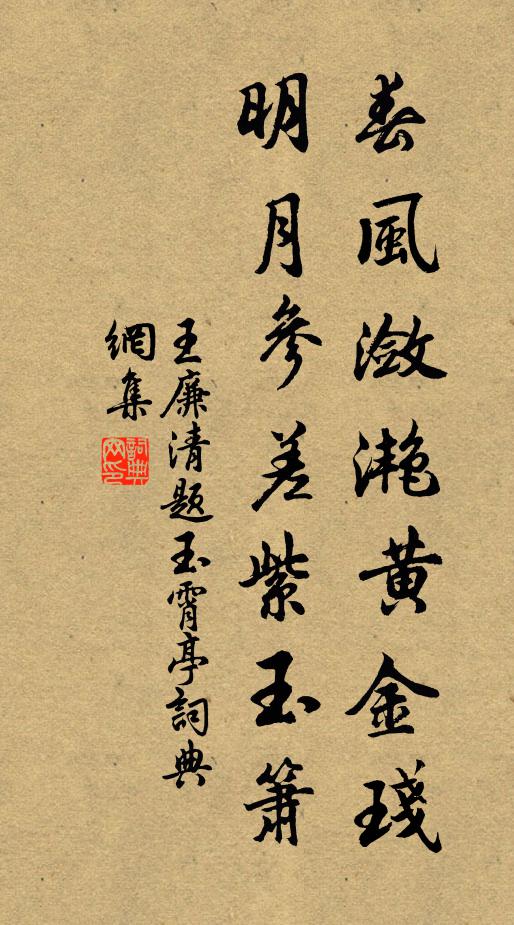 春風瀲灔黄金琖
明月參差紫玉簫
王廉清題玉霄亭詞典
網集
詞典網印